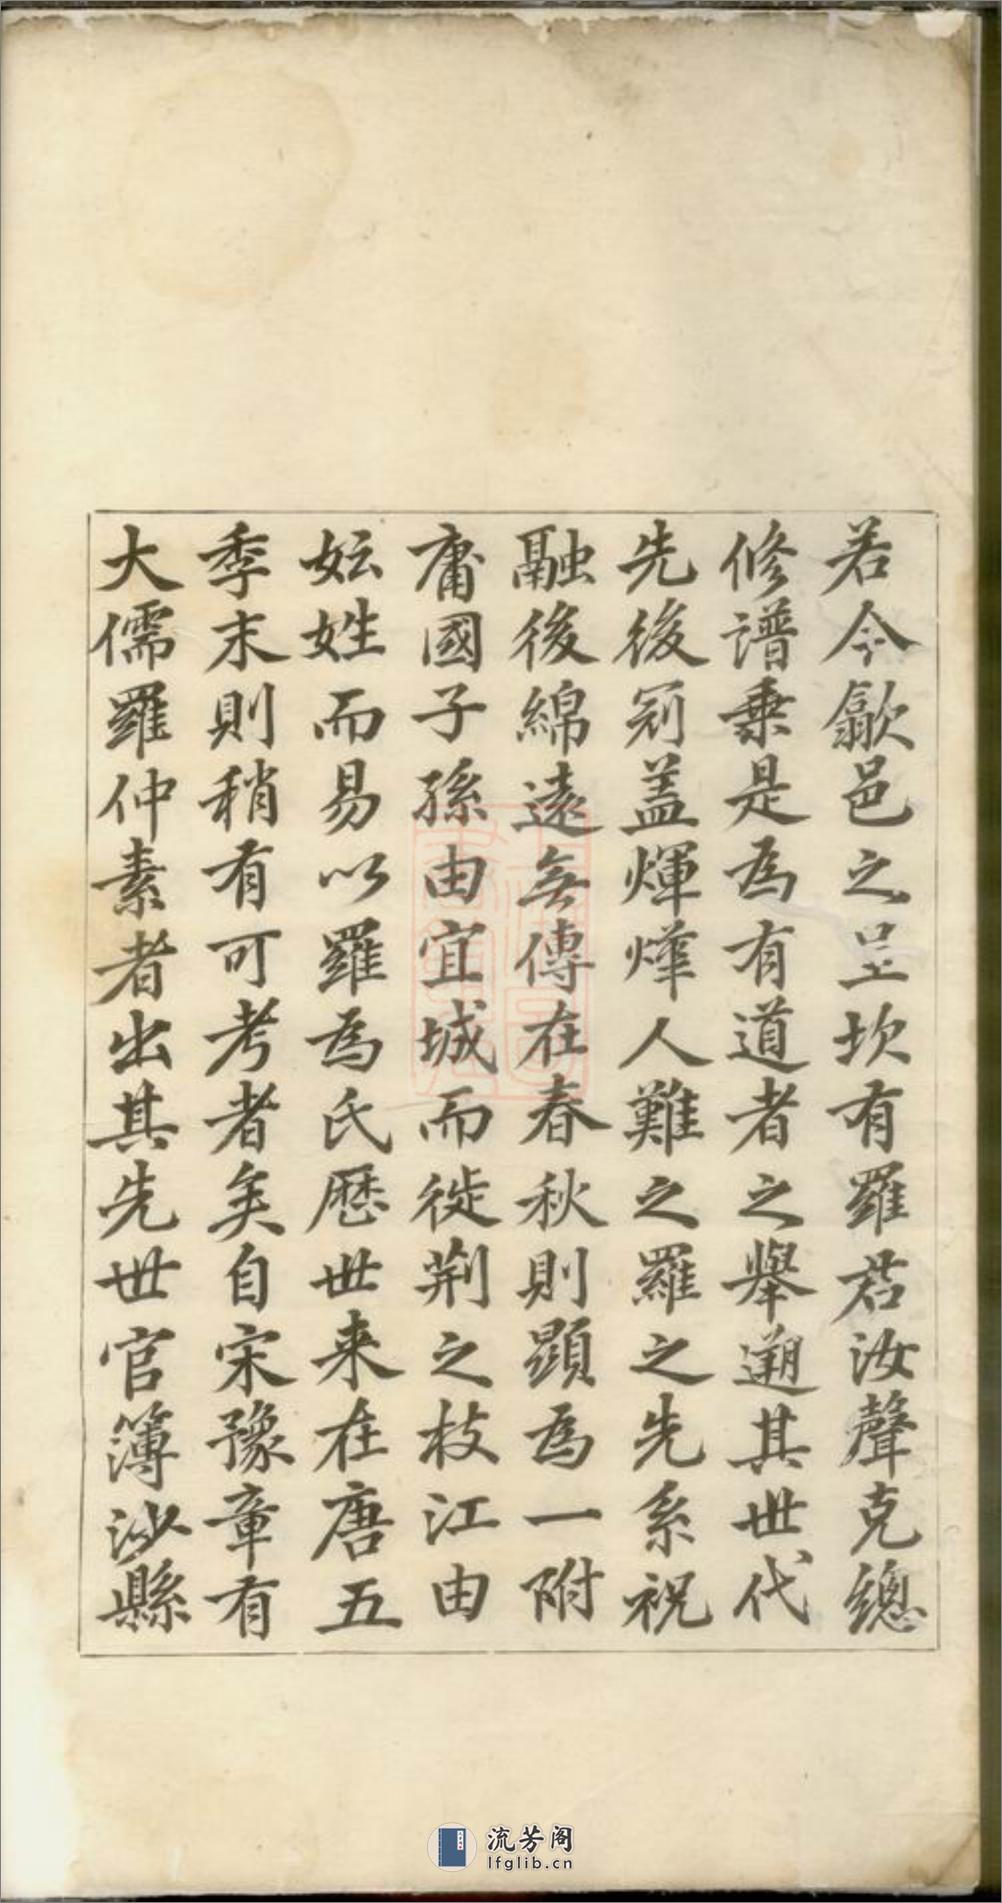 若今歙邑之呈坎有羅君汝聲克總
修譜乗是為有道者之舉遡其世代
先後冠盖煇燁人難之羅之先系祝
融後綿遠無傳在春秋則顕為一附
庸國子孫由宜城而徙荆之枝江由
妘姓而易以羅為氏歴世来在唐五
季末則稍有可考者矣自宋豫章有
大儒羅仲素者出其先世官簿沙縣
流芳阁
lfglib.cn